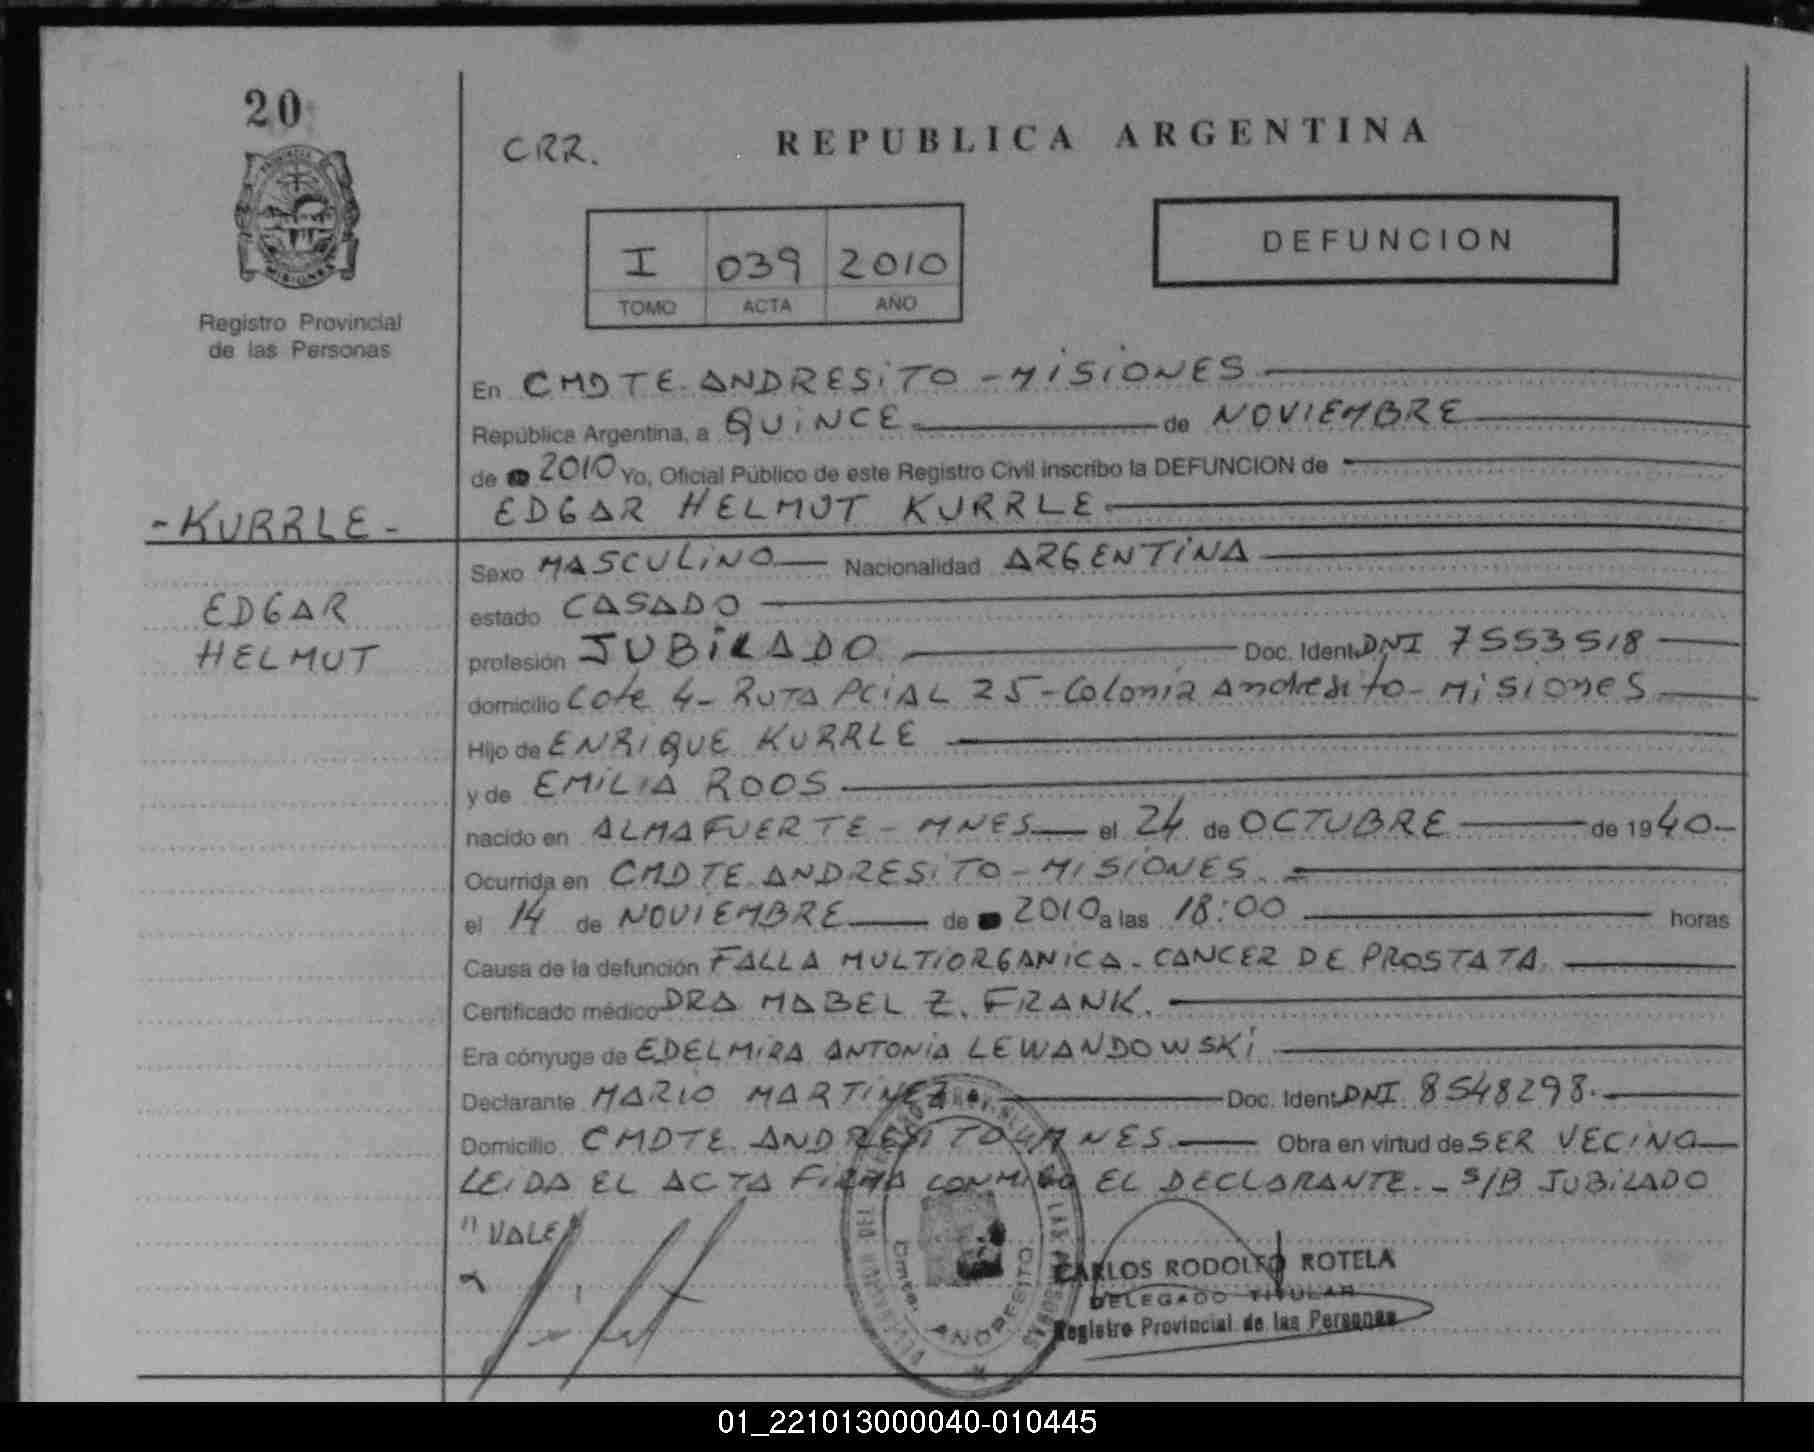 20
CRR.
REPUBLICA ARGENTINA
I 039 2010
TOMO ACTA AÑO
DEFUNCION
MISIONES
Registro Provincial
de las Personas
En CMDTE. ANDRESiTO - MiSiONES
República Argentina, a QUiNCE de NOVIEMBRE
de 2010 Yo, Oficial Público de este Registro Civil inscribo la DEFUNCION de
- KURRLE -
EDGAR HELMUT KURRLE
Sexo MASCULiNO Nacionalidad ARGENTiNA
EDGAR
HELMUT
estado CASADO
profesión JUBiLADO Doc. Ident. DNI 7553518
domicilio Lote 4 - RUTA PCiAL 25 - Colonia Andresito - MiSiones
Hijo de ENRIQUE KURRLE
y de EMiLiA ROOS
nacido en ALMAFUERTE - MNES el 24 de OCTUBRE de 1940-
Ocurrida en CMDTE. ANDRESiTO - MISIONES.
el 14 de NOVIEMBRE de 2010 a las 18:00 horas
Causa de la defunción FALLA MULTIORGANiCA - CANCER DE PROSTATA.
Certificado médico DRA MABEL Z. FRANK.
Era cónyuge de EDELMiRA ANTONiA LEWANDOWSKi
Declarante MARIO MARTiNEZ Doc. Ident. DNI 8548298.
Domicilio CMDTE. ANDRESiTO - MNES. Obra en virtud de SER VECiNO
LEiDA EL ACTA FiRMA CONMiGO EL DECLARANTE. - S/B JUBiLADO
" VALE
CARLOS RODOLFO ROTELA
DELEGADO TITULAR
Registro Provincial de las Personas
Cmte. ANDRESITO
01_221013000040-010445